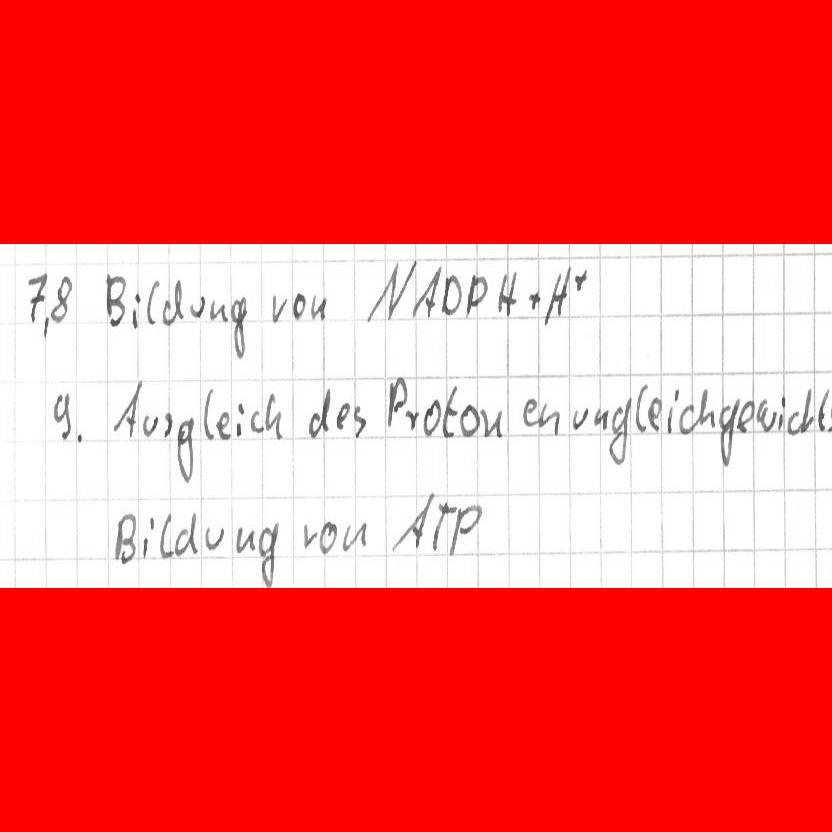 7,8 Bildung von NADPH+H⁺
9. Ausgleich des Protonenungleichgewichts
Bildung von ATP